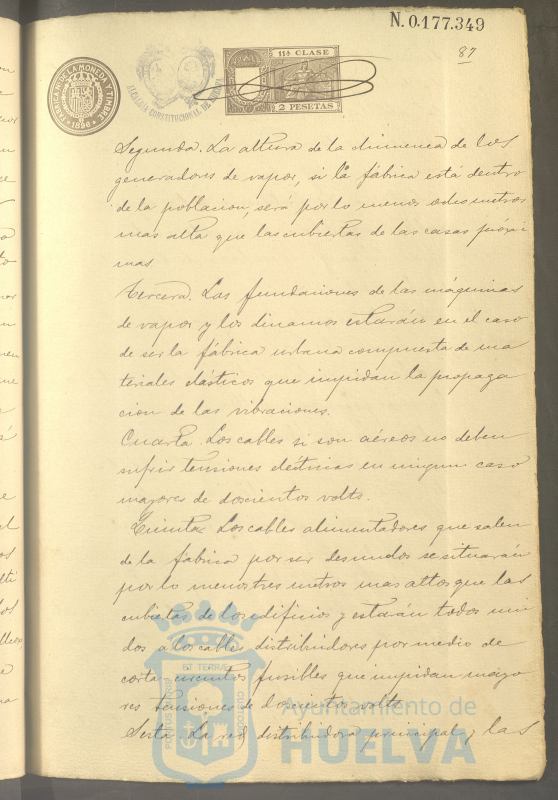 N. 0.177.349
87
FABRICA N. DE LA MONEDA Y TIMBRE
1896
ALCALDIA CONSTITUCIONAL DE HUELVA
11ª CLASE
2 PESETAS
Segunda. La altura de la chimenea de los
generadores de vapor, si la fábrica está dentro
de la poblacion, será por lo menos ocho metros
mas alta que las cubiertas de las casas próxi
mas
Tercera. Las fundaciones de las máquinas
de vapor y los dinamos estarán en el caso
de ser la fábrica urbana compuesta de ma
teriales elásticos que impidan la propaga
cion de las vibraciones.
Cuarta. Los cables si son aéreos no deben
sufrir tensiones eléctricas en ningun caso
mayores de doscientos volts.
Quinta. Los cables alimentadores que salen
de la fábrica por ser desnudos se situarán
por lo menos tres metros mas altos que las
cubiertas de los edificios y estarán todos uni
dos a los cables distribuidores por medio de
corta circuitos fusibles que impidan mayo
res tensiones de doscientos volts.
Sesta. La red distribuidora principal y las
PORTUS MARIS
ET TERRAE
CUSTODIA
Ayuntamiento de
HUELVA